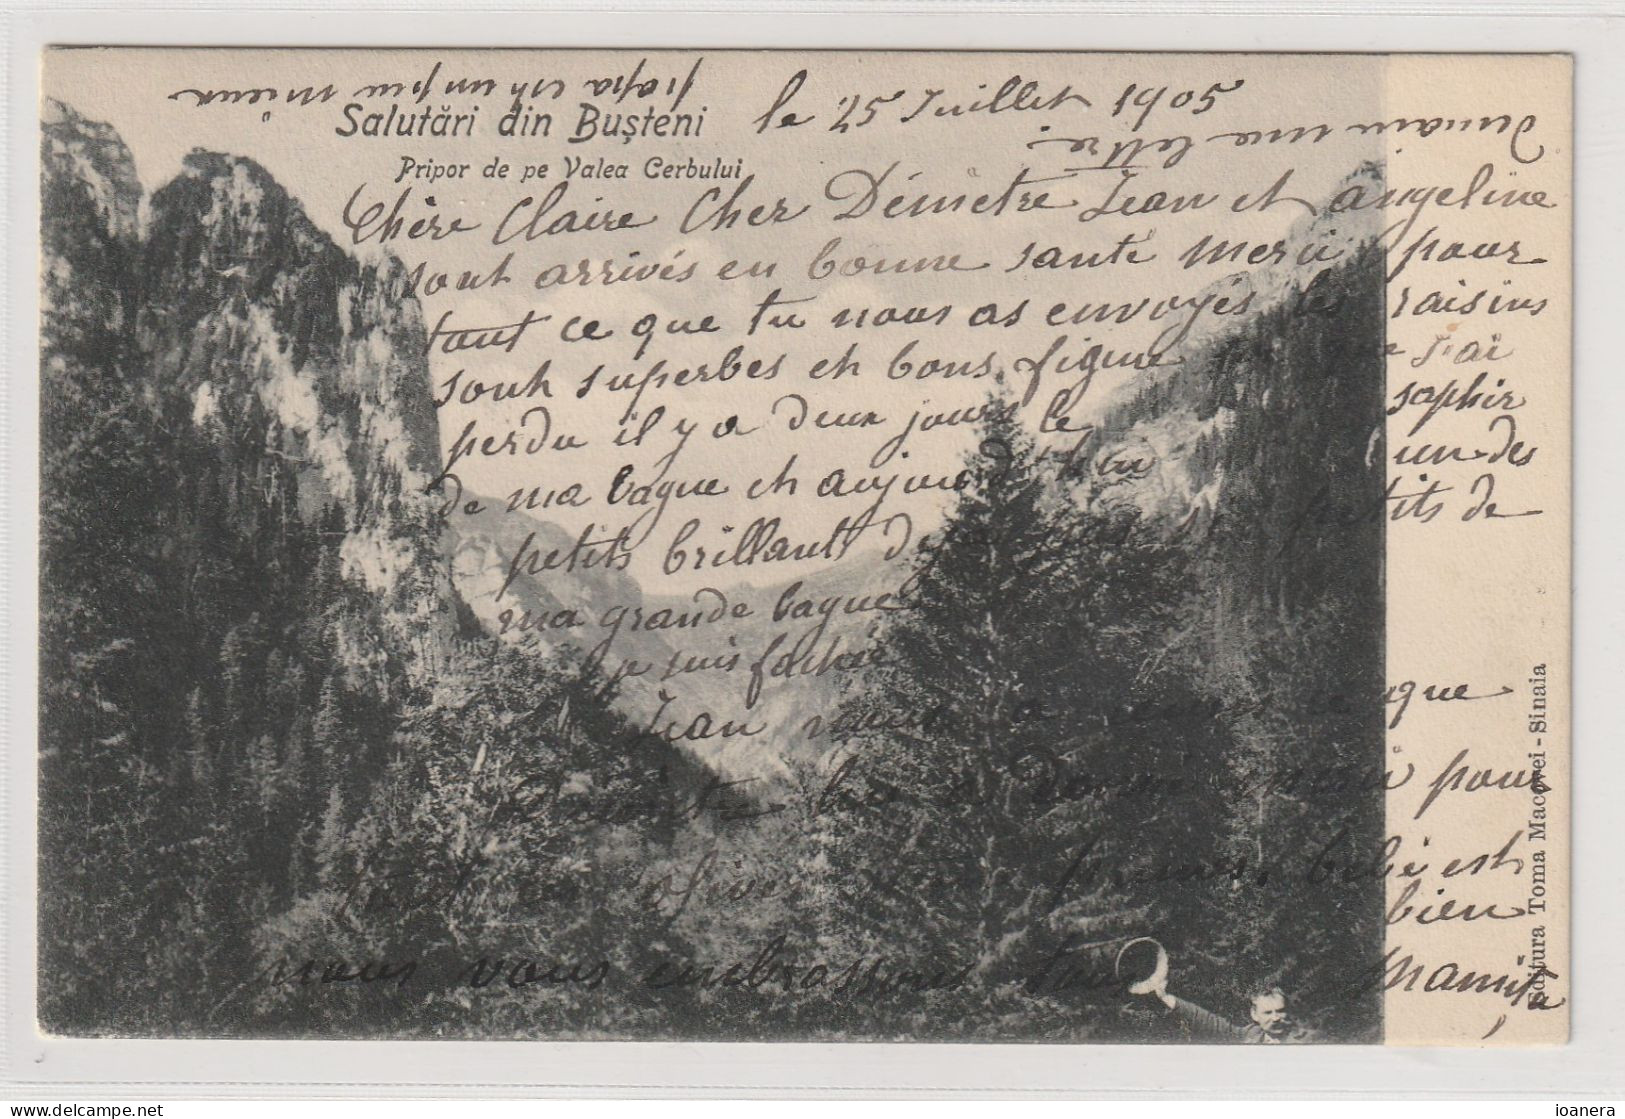 Salutări din Bușteni
Pripor de pe Valea Cerbului
le 25 Juillet 1905
Chère Claire Cher Démetre Jean et Angeline
sont arrivés en bonne sante merci pour
tant ce que tu nous as envoyés les raisins
sont superbes et bons, figure j'ai
perdu il y a deux jours le saphir
de ma bague et aujourd'hui un des
petits brillant petits de
ma grande bague
je suis fachée
Jean nous a ce que
Demetre lui a donné merci pour
tout ce bébé est
bien
nous vous embrassons tous Mamița
demain une lettre
papa est un peu mieux
Editura Toma Macovei - Sinaia
delcampe.net
ioanera